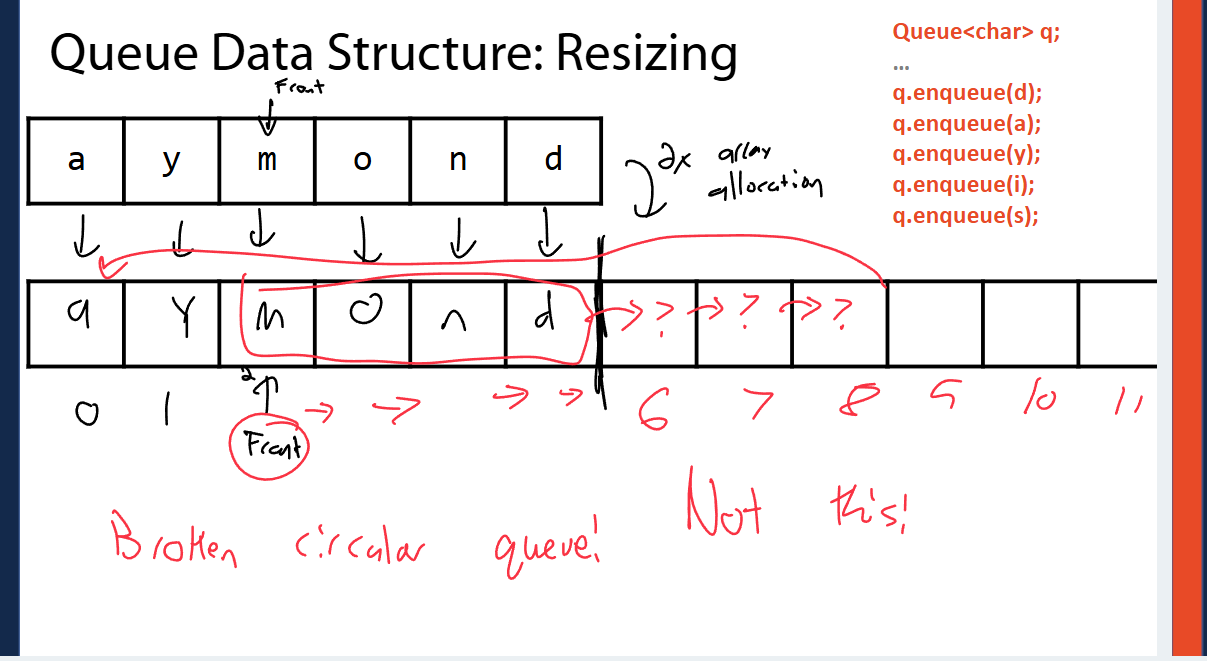 Queue Data Structure: Resizing
Queue<char> q;
...
q.enqueue(d);
q.enqueue(a);
q.enqueue(y);
q.enqueue(i);
q.enqueue(s);
Front
a y m o n d
2x array
allocation
a y m o n d ? ? ?
0 1 2 6 7 8 9 10 11
Front
Not this!
Broken circular queue!